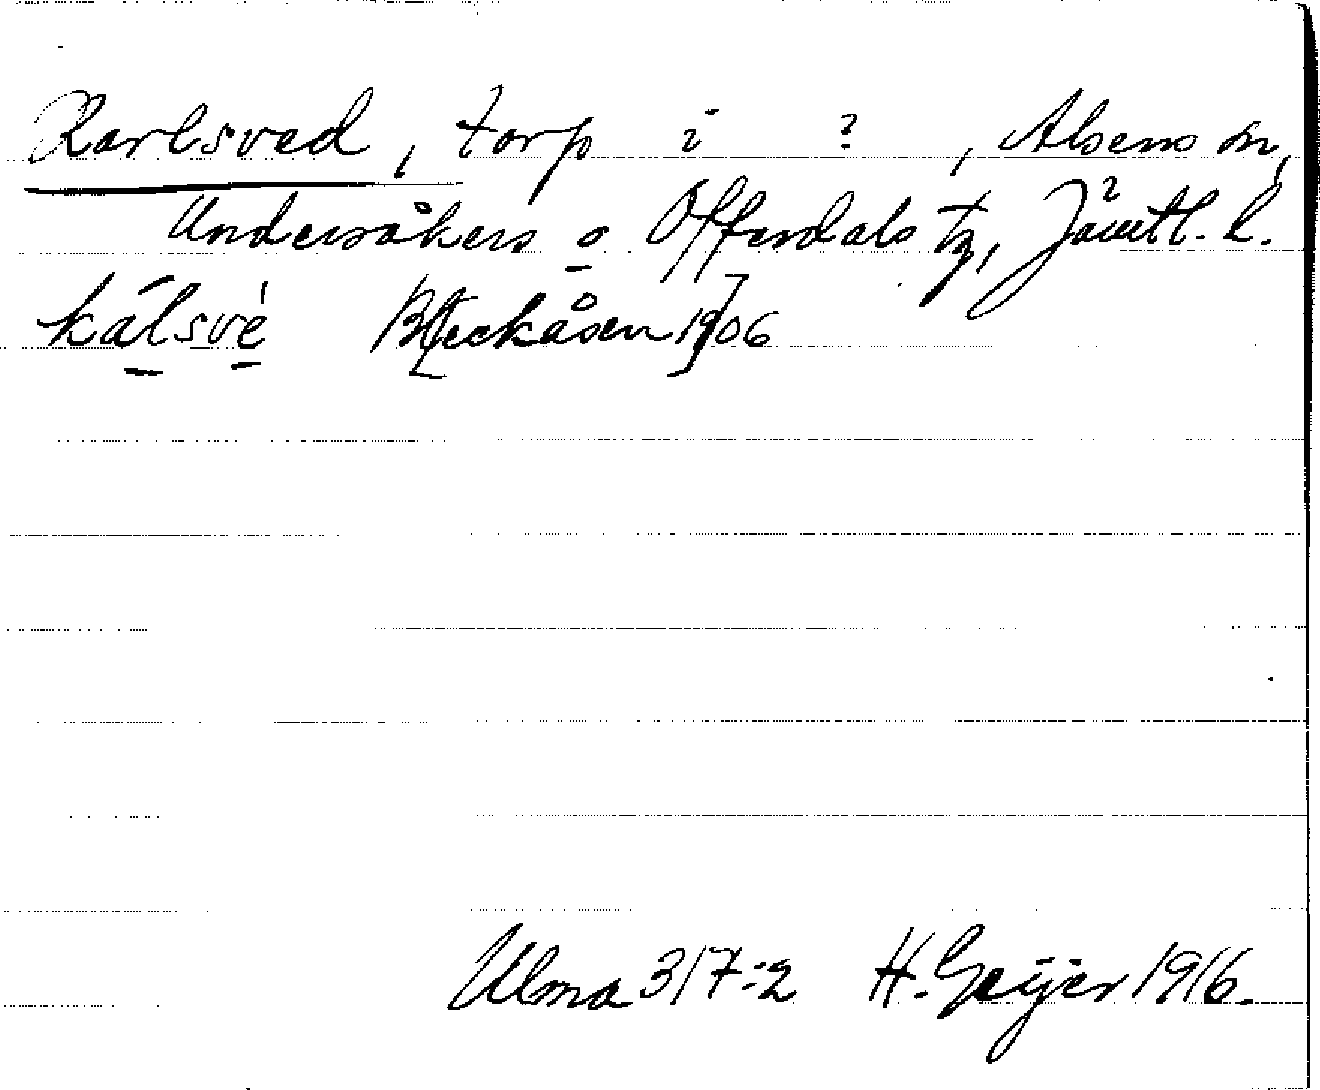 Karlsved, torp i ? , Alsens sn,
Undersåkers o Offerdals tg, Jämtl. l.
kálsvè B[leckåsen 19]06
Ulma 317:2 H. Geijer 1916.